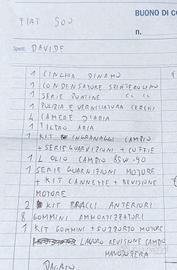 BUONO DI CO
n.
FIAT 500
Spett. DAVIDE
1 CINGHIA DINAMO
1 CONDENSATORE SPINTEROGENO
1 SERIE PUNTINE
1 PULIZIA E VERNICIATURA CERCHI
4 CAMERE D'ARIA
1 FILTRO ARIA
1 KIT INGRANAGGI CAMBIO
+ SERIE GUARNIZIONI + CUFFIE
1 L OLIO CAMBIO 85W-90
1 SERIE GUARNIZIONI MOTORE
+ KIT CANNETTE + REVISIONE
MOTORE
2 KIT BRACCI ANTERIORI
8 GOMMINI AMMORTIZZATORI
1 KIT GOMMINI + SUPPORTO MOTORE
LAVORO REVISIONE CAMBIO
MANODOPERA